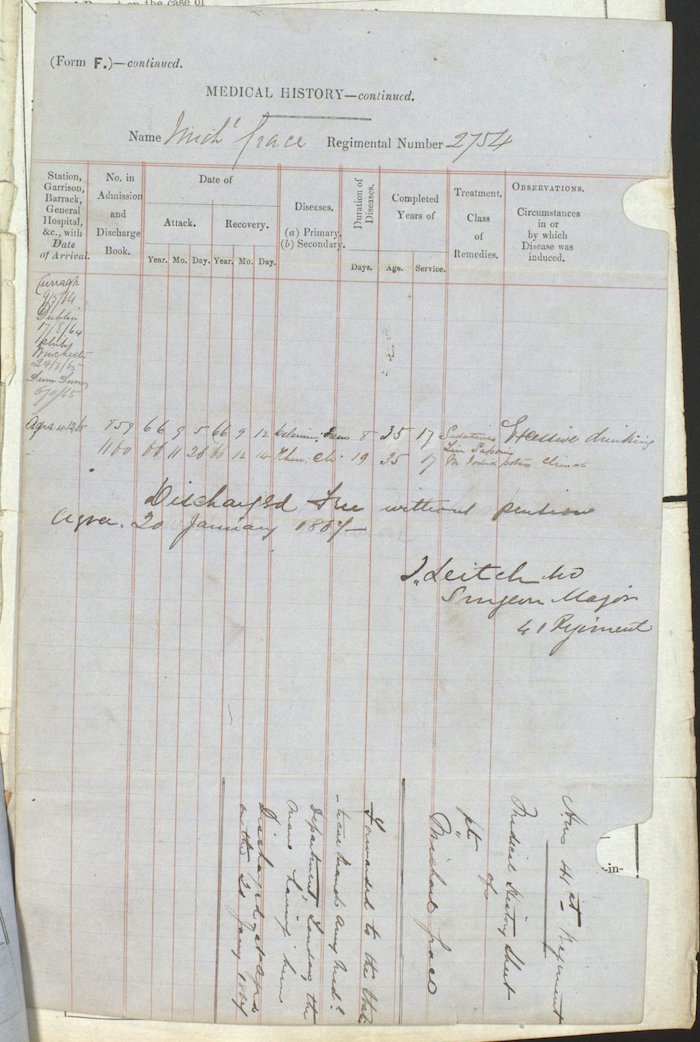 (Form F.)—continued.
MEDICAL HISTORY—continued.
Name Mich^l Grace Regimental Number 2754
Station, Garrison, Barrack, General Hospital, &c., with Date of Arrival.
No. in Admission and Discharge Book.
Date of
Attack. Recovery.
Year. Mo. Day. Year. Mo. Day.
Diseases.
(a) Primary.
(b) Secondary.
Duration of Diseases.
Days.
Completed Years of
Age. Service.
Treatment.
Class of Remedies.
OBSERVATIONS.
Circumstances in or by which Disease was induced.
Curragh
Dublin
17/8/64
Agra 859 66 9 5 66 9 12 8 35 17 Sedatives Excessive drinking
1160 66 11 26 66 12 14 19 35 17
Discharged free without pension
Agra. 20 January 1867—
J. Leitch MD
Surgeon Major
41 Regiment
41st Regiment
Medical History Sheet
of
Pte Michael Grace
Forwarded to the
Army Med^l
Department London, the
man having been
Discharged at Agra
on the
-in-